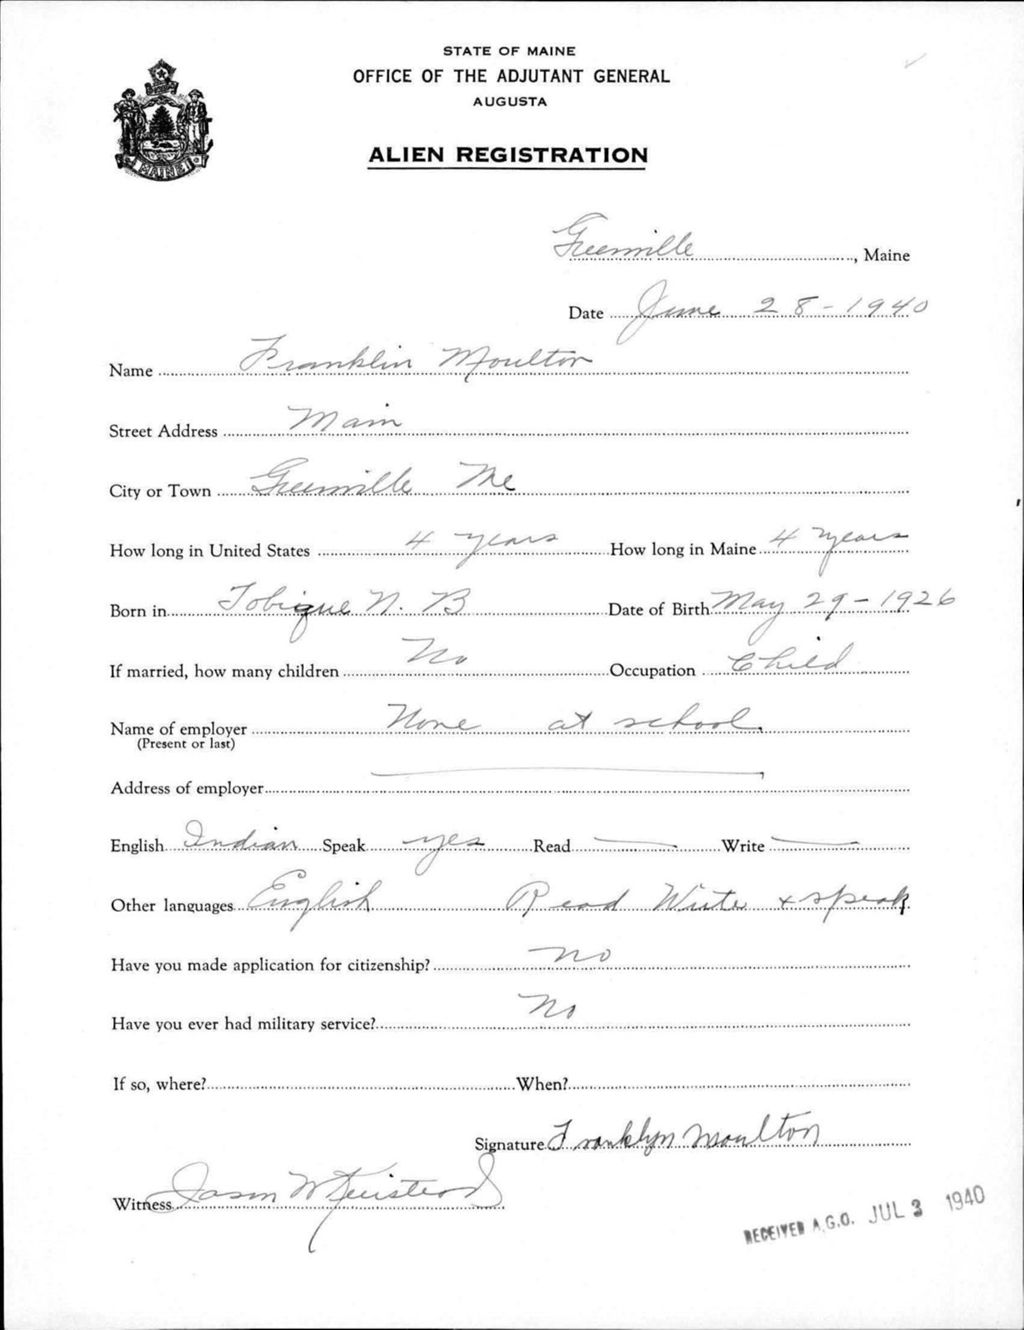 STATE OF MAINE
OFFICE OF THE ADJUTANT GENERAL
AUGUSTA
ALIEN REGISTRATION
MAINE
Greenville, Maine
Date June 28 - 1940
Name Franklin Moulton
Street Address Main
City or Town Greenville Me
How long in United States 4 years How long in Maine 4 years
Born in Tobique N. B Date of Birth May 29 - 1926
If married, how many children No Occupation Child
Name of employer None at school.
(Present or last)
Address of employer
English Indian Speak yes Read — Write —
Other languages English Read Write + speak
Have you made application for citizenship? No
Have you ever had military service? No
If so, where? When?
Signature Franklyn Moulton
Witness Jason W
RECEIVED A.G.O. JUL 3 1940